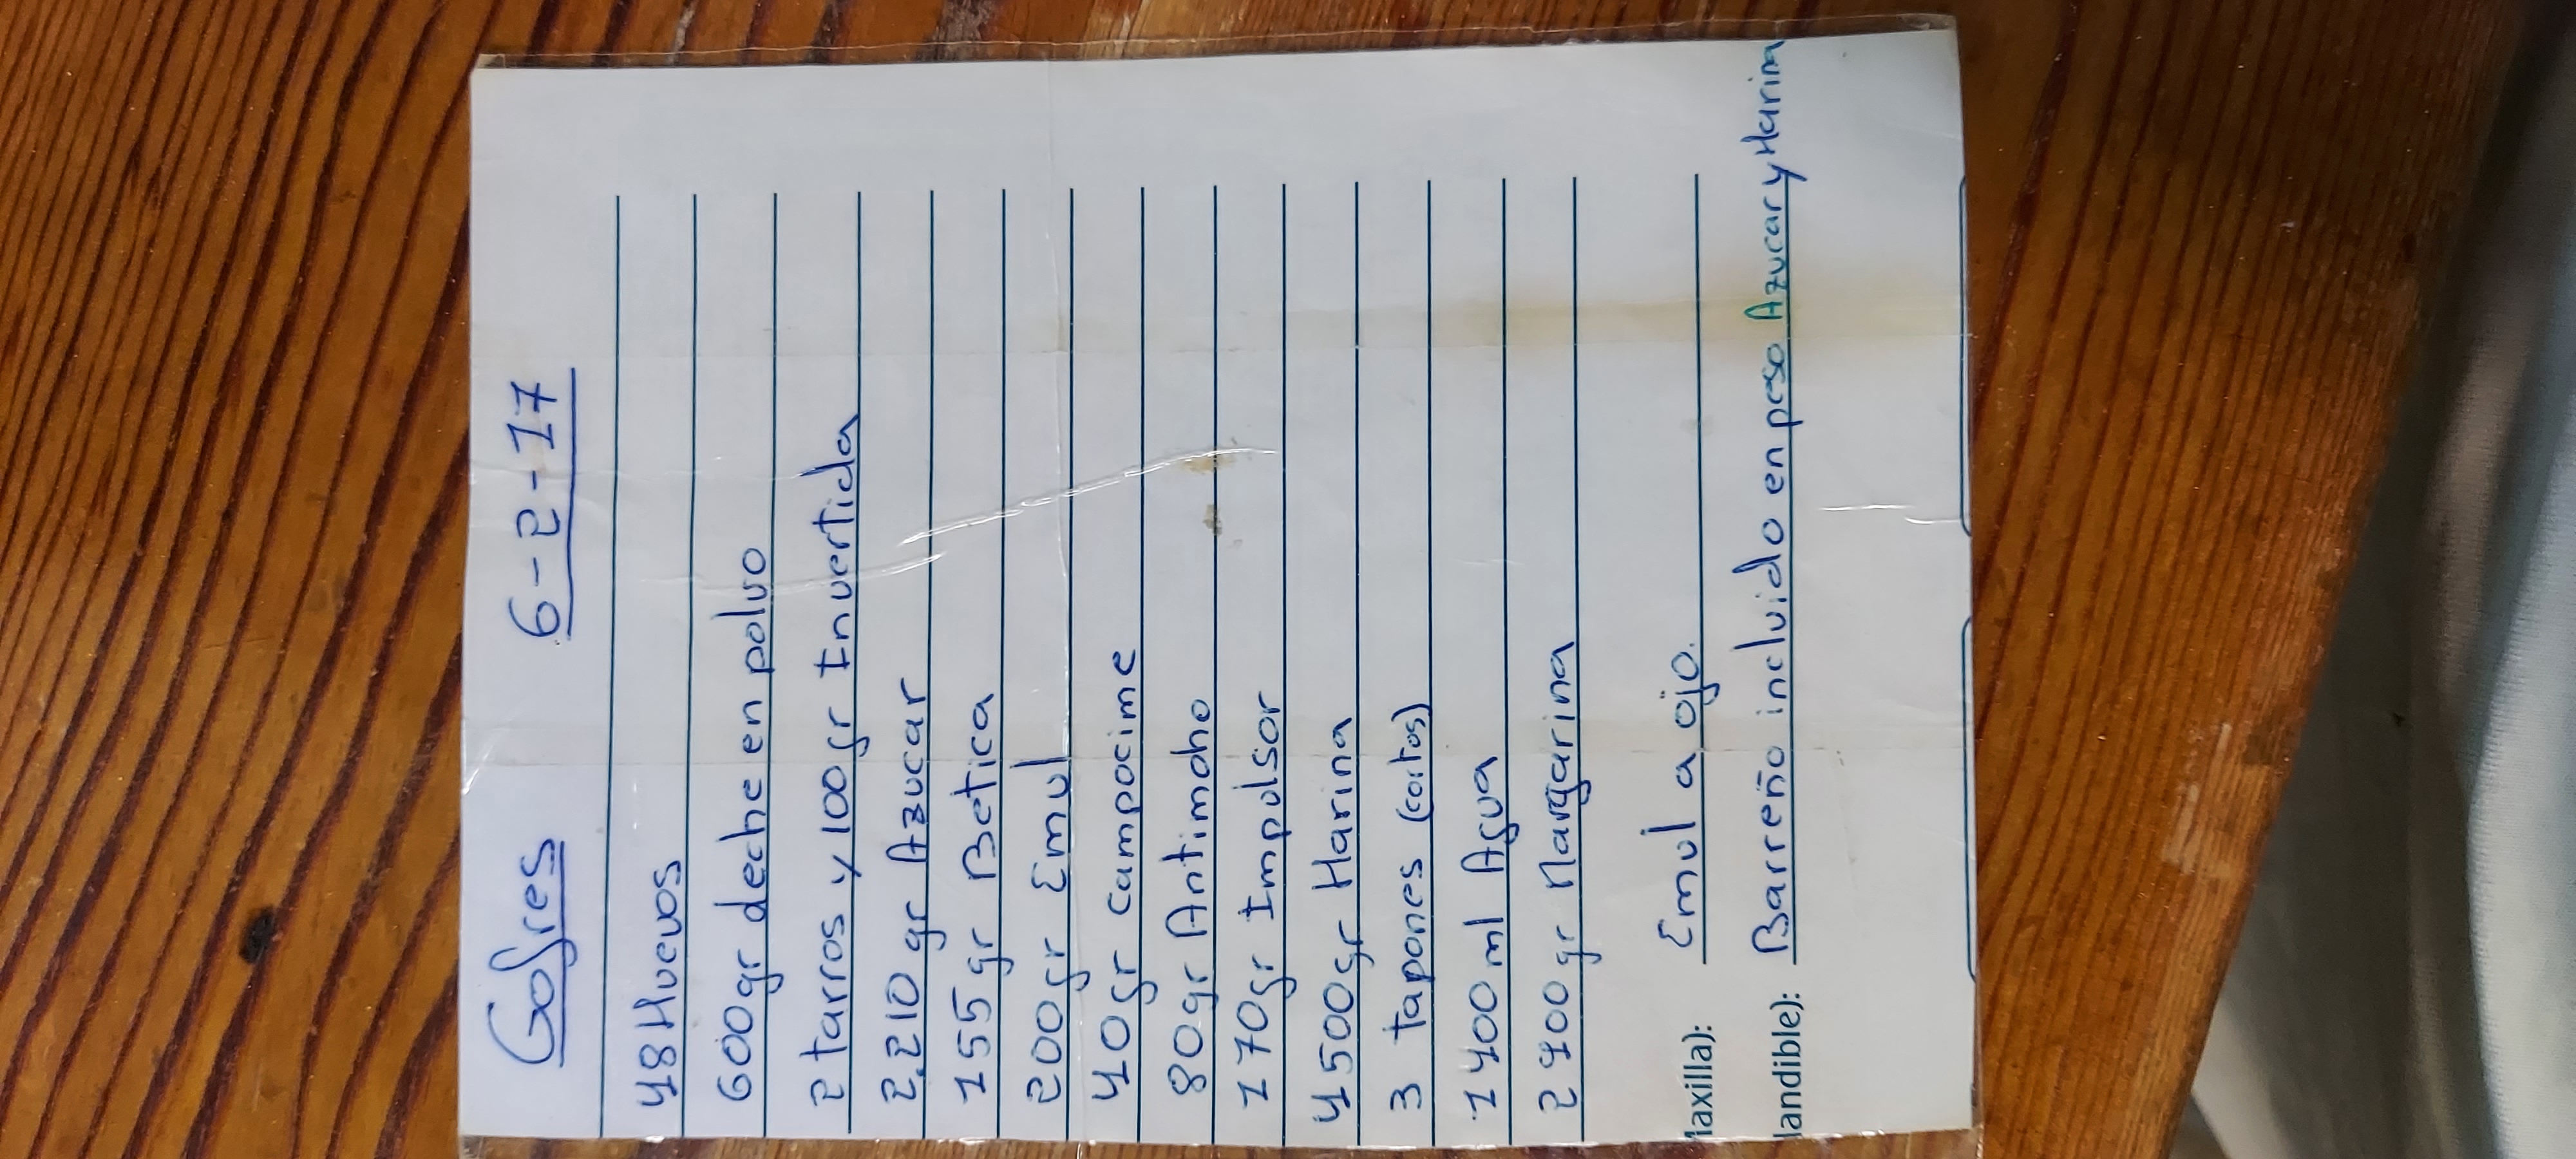 Gofres 6-2-17
48 Huevos
600gr deche en polvo
2 tarros y 100gr Invertida
2.210 gr Azucar
155 gr Betica
200gr Emul
40gr campocime
80gr Antimoho
170gr Impolsor
4500gr Harina
3 tapones (cortos)
1400 ml Agua
2400gr Margarina
laxilla): Emul a ojo.
landible): Barreño incluido en peso Azucar y Harina